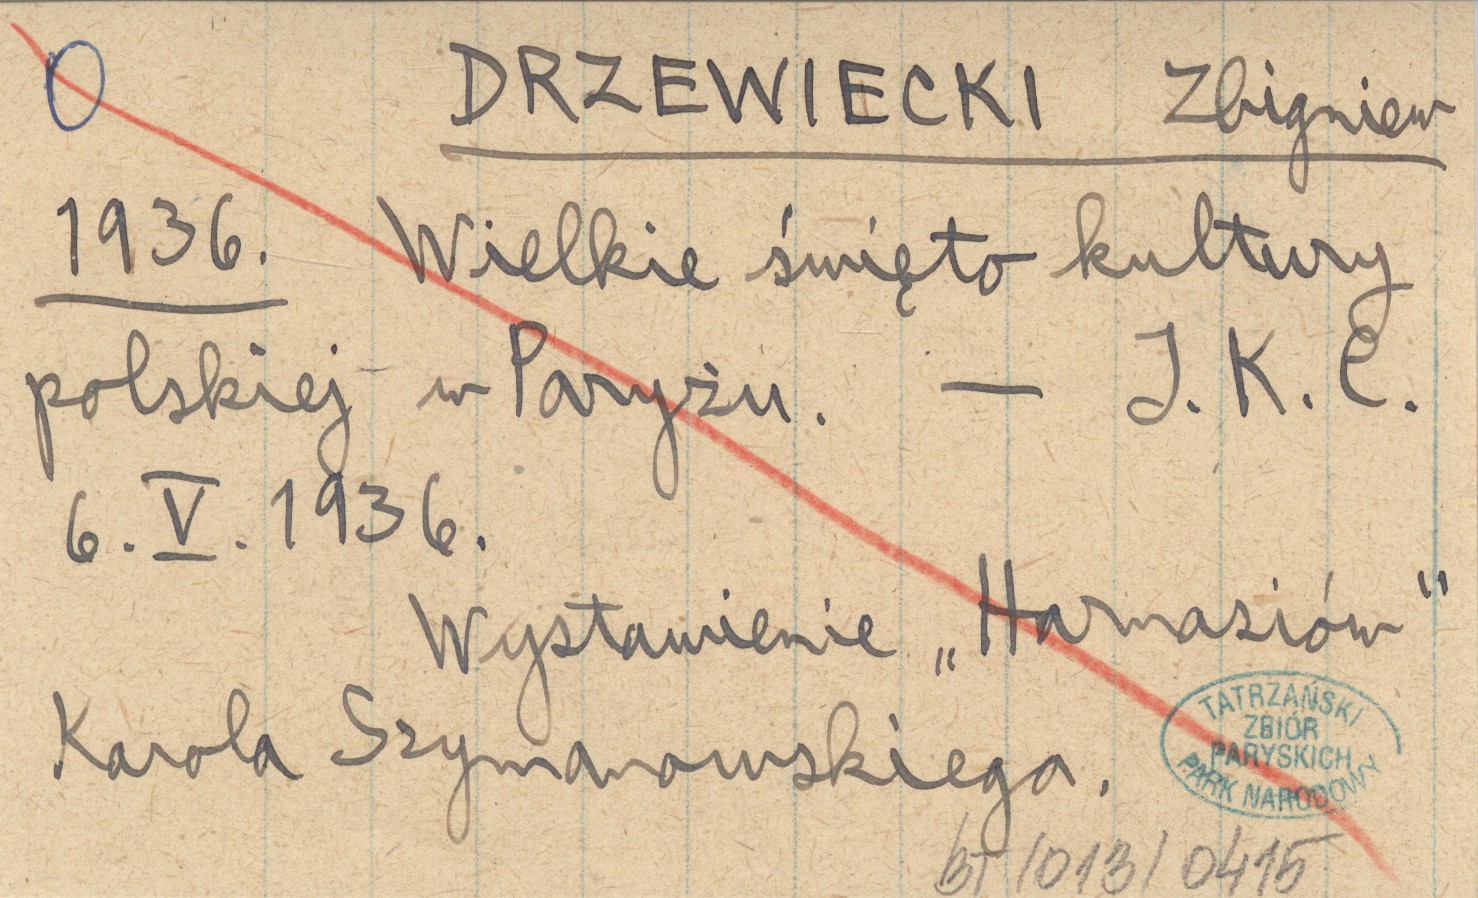 0 DRZEWIECKI Zbigniew
1936. Wielkie święto kultury
polskiej w Paryżu. — I. K. C.
6. V. 1936.
Wystawienie „Harnasiów"
Karola Szymanowskiego.
TATRZAŃSKI
ZBIÓR
PARYSKICH
PARK NARODOWY
BT/013/0415